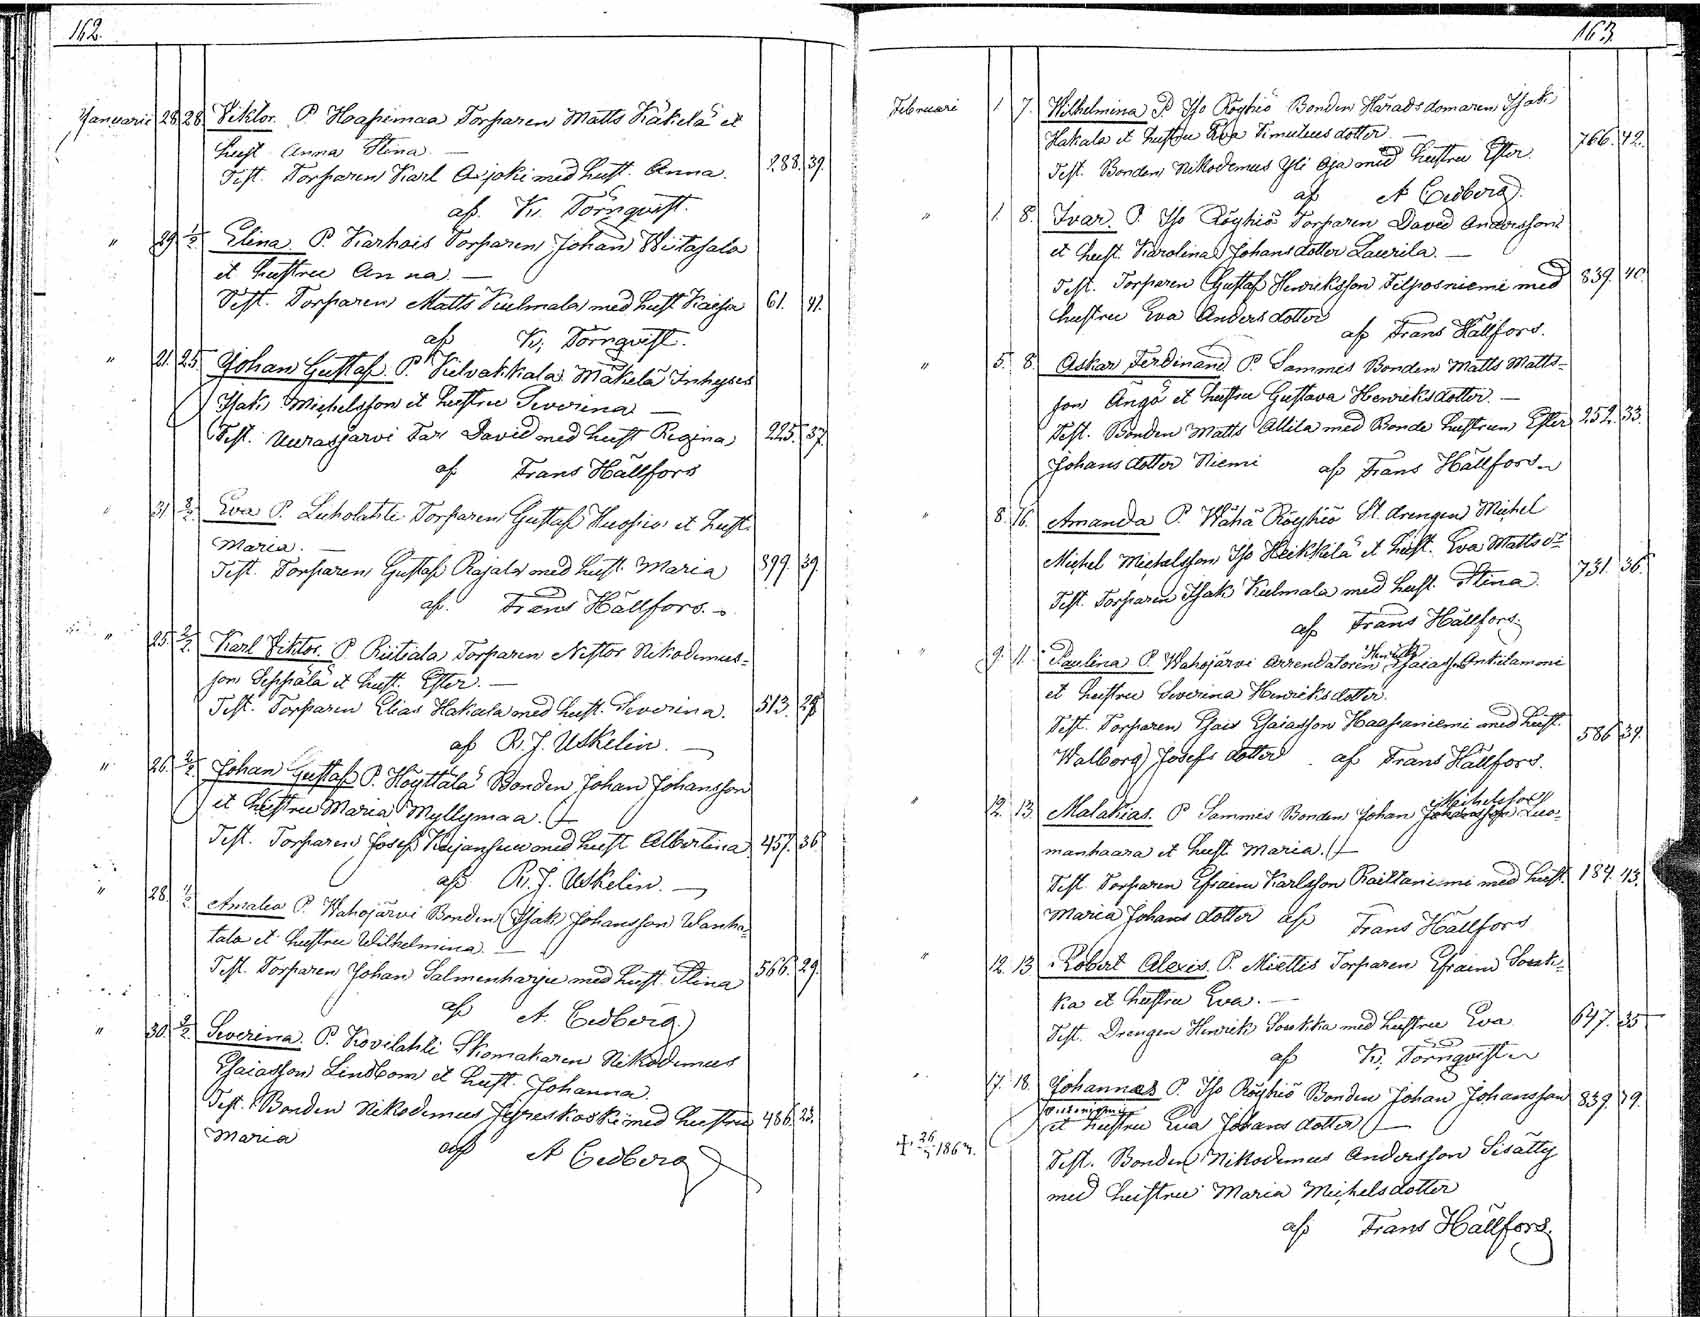 162.
Januarii 28 28 Viktor. P. Haapimaa Torparen Matts Käkelä et
hust. Anna Stina. —
Test. Torparen Karl Axjoki med hust. Anna. 288. 39.
af K. Törnqvist.
" 29 1/2 Elina. P. Karhois Torparen Johan Wiitasalo
et hustru Anna —
Test. Torparen Matts Kulmala med hust. Kaisa 61. 41.
af K. Törnqvist.
" 21. 25. Johan Gustaf. P. Kilvakkala Mäkelä Inhyses
Isak Michelsson et hustru Severina —
Test. Aurasjärvi David med hust Regina 225. 37.
af Frans Hällfors
" 31 2/2 Eva P. Luholahti Torparen Gustaf Huosio et hust.
Maria. —
Test. Torparen Gustaf Rajala med hust. Maria 899. 39.
af. Frans Hällfors.
" 25. 2/2 Karl Viktor. P. Riitiala Torparen Nestor Nikodemus-
son Seppälä et hust. Ester. —
Test. Torparen Elias Hakala med hust. Severina. 513.
af R. J. Uskelin. —
" 26. 2/2 Johan Gustaf P. Höyttälä Bonden Johan Johansson
et hustru Maria Myllymaa.
Test. Torparen Josef Kujansuu med hust Albertina 457. 36.
af R. J. Uskelin. —
" 28. 1/2 Amalia P. Wahojärvi Bonden Isak Johansson Wanha-
talo et hustru Wilhelmina. —
Test. Torparen Johan Salmenharju med hust. Stina 566. 29.
af A. Cedberg.
" 30. 2/2 Severina. P. Kovilahti Skomakaren Nikodemus
Esaiasson Lindbom et hust. Johanna.
Test. Bonden Nikodemus Jyreskoski med hustru 486. 23.
Maria af A Cedberg
163.
Februari 1 7. Wilhelmina P. Iso Röyhiö Bonden Häradsdomaren Isak
Hakala et hustru Eva Timuleusdotter — 766. 42.
Test. Bonden Nikodemus Yli Oja med hustru Ester.
af A Cedberg.
" 1. 8. Ivar. P. Iso Röyhiö Torparen David Andersson
et hust. Karolina Johansdotter Laurila. —
Test. Torparen Gustaf Henriksson Felposniemi med 839. 40.
hustru Eva Andersdotter
af Frans Hällfors.
" 5. 8. Oskar Ferdinand P. Sammis Bonden Matts Matts-
son Ängä et hustru Gustava Henriksdotter. —
Test. Bonden Matts Ollila med Bonde hustrun Ester 252. 33.
Johansdotter Niemi af Frans Hällfors
" 8. 16. Amanda P. Wähä Röyhiö St. drengen Michel
Michel Michelsson Iso Heikkilä et hust. Eva Matts dr 731. 36.
Test. Torparen Isak Kulmala med hust. Stina.
af Frans Hällfors.
" 9. 11. Paulina P. Wahojärvi Arrendatoren Henrik Esaiasson Antilammi
et hustru Severina Henriksdotter.
Test. Torparen Esaias Esaiasson Haapaniemi med hust. 586 39.
Walborg Josefsdotter. af Frans Hällfors.
" 12. 13. Malakias. P Sammis Bonden Johan Michelsson Johansson Luo-
manhaara et hust Maria.
Test. Torparen Efraim Karlsson Raittaniemi med hust. 184. 43.
Maria Johansdotter af Frans Hällfors
" 12. 13 Robert Alexis. P. Miettis Torparen Efraim Soukk-
ka et hustru Eva. —
Test. Drengen Henrik Soukka med hustru Eva 647. 35
af K. Törnqvist
" 17. 18. Johannes P. Iso Röyhiö Bonden Johan Johansson 839. 39.
et hustru Eva Johansdotter —
† 26/3 1863.
Test. Bonden Nikodemus Andersson Sisätty
med hustru Maria Michelsdotter
af Frans Hällfors.